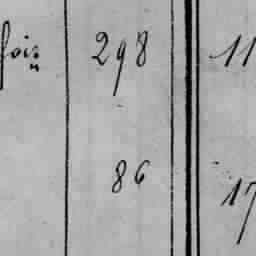 fois 298 11
86
17